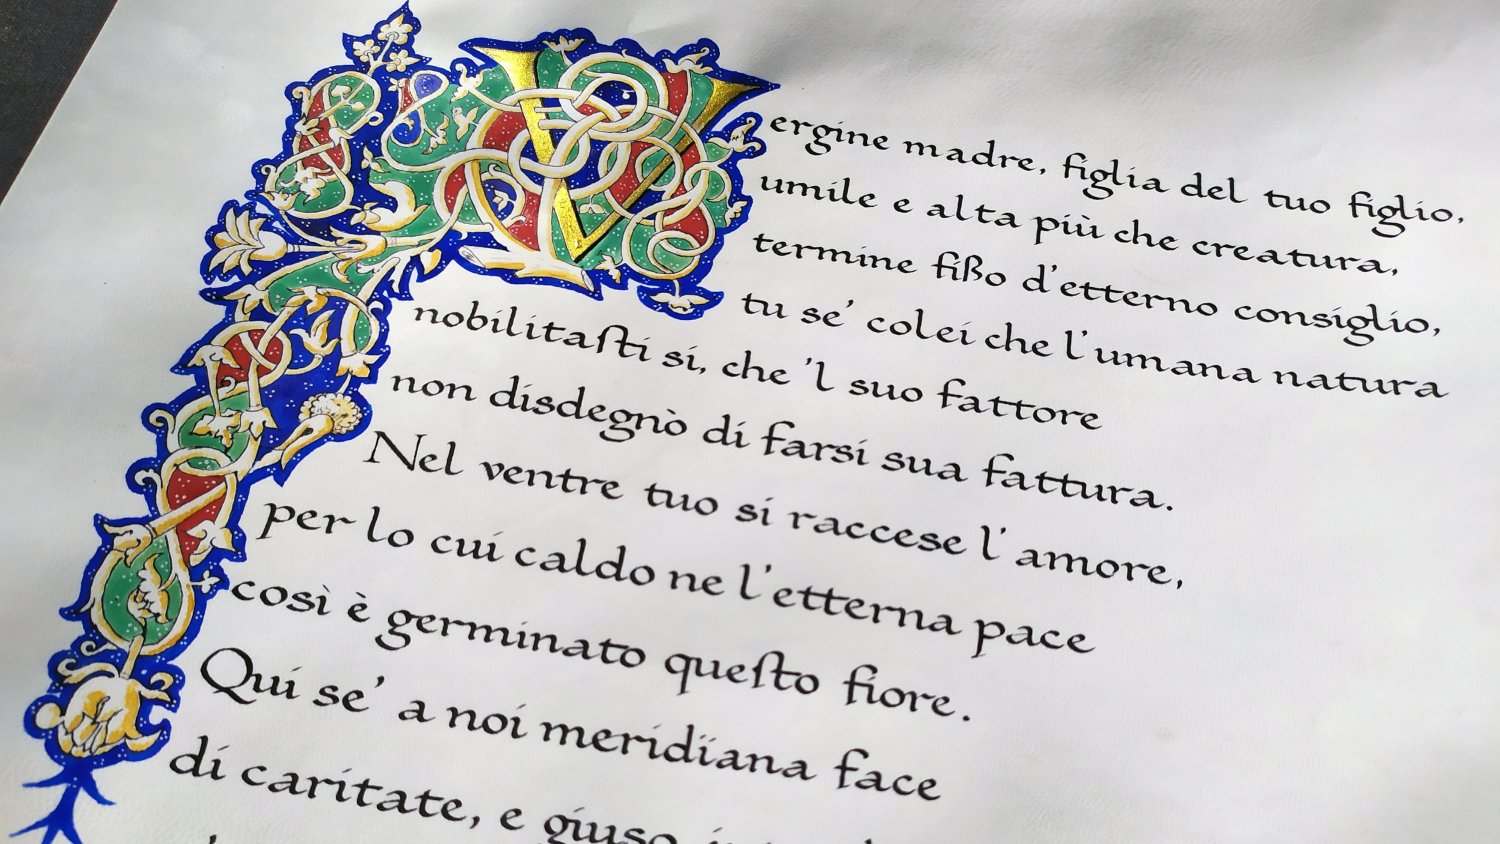 Vergine madre, figlia del tuo figlio,
umile e alta più che creatura,
termine fißo d'etterno consiglio,
tu se' colei che l'umana natura
nobilitaſti sí, che 'l suo fattore
non disdegnò di farsi sua fattura.
Nel ventre tuo si raccese l'amore,
per lo cui caldo ne l'etterna pace
così è germinato queſto fiore.
Qui se' a noi meridïana face
di caritate, e giuso